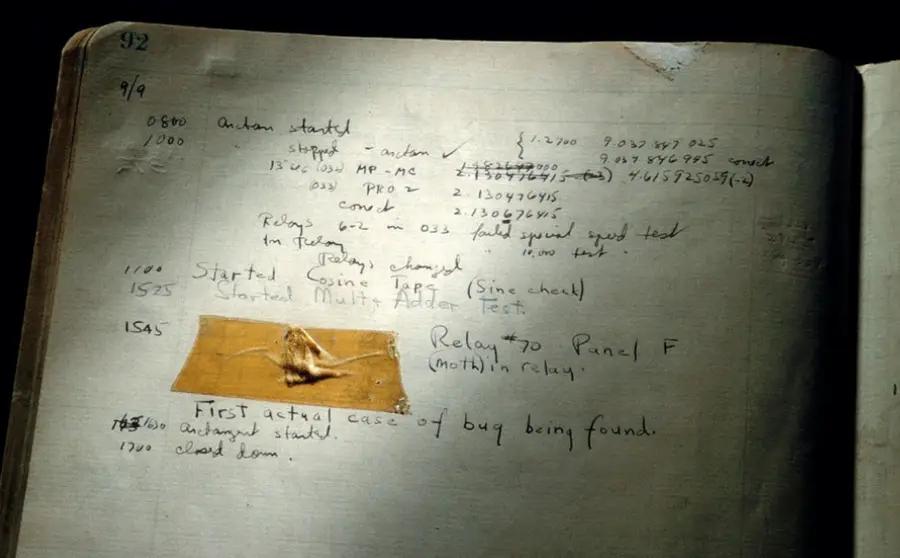 92
9/9
0800 arctan started
1000 " stopped - arctan ✓ { 1.2700 9.037 847 025
9.037 846 995 correct
13"uc (032) MP - MC 2.130476415 (-3) 4.615925059(-2)
(033) PRO 2 2.130476415
correct 2.130676415
Relays 6-2 in 033 failed special speed test
In Relay " 10.000 test .
Relays changed
1100 Started Cosine Tape (Sine check)
1525 Started Mult + Adder Test.
1545 Relay #70 Panel F
(moth) in relay.
First actual case of bug being found.
1630 arctangent started.
1700 closed down.